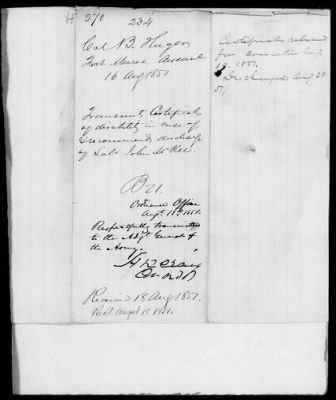 H 270
234
Col. B. Huger
Fort Monroe Arsenal
16 Aug 1851.
Transmits Certificate
of disability in case of &
recommends discharge
of Labr. John McKee.
B 21.
Ordnance Office
Augt. 18th. 1851.
Respectfully transmitted
to the Adjt. General of
the Army.
H K Craig
Col Ord
Received 18 Aug 1851.
Recd. Augst 18. 1851.
Certificates returned
for Aug.
1851.
Discharged Aug. 28
51/